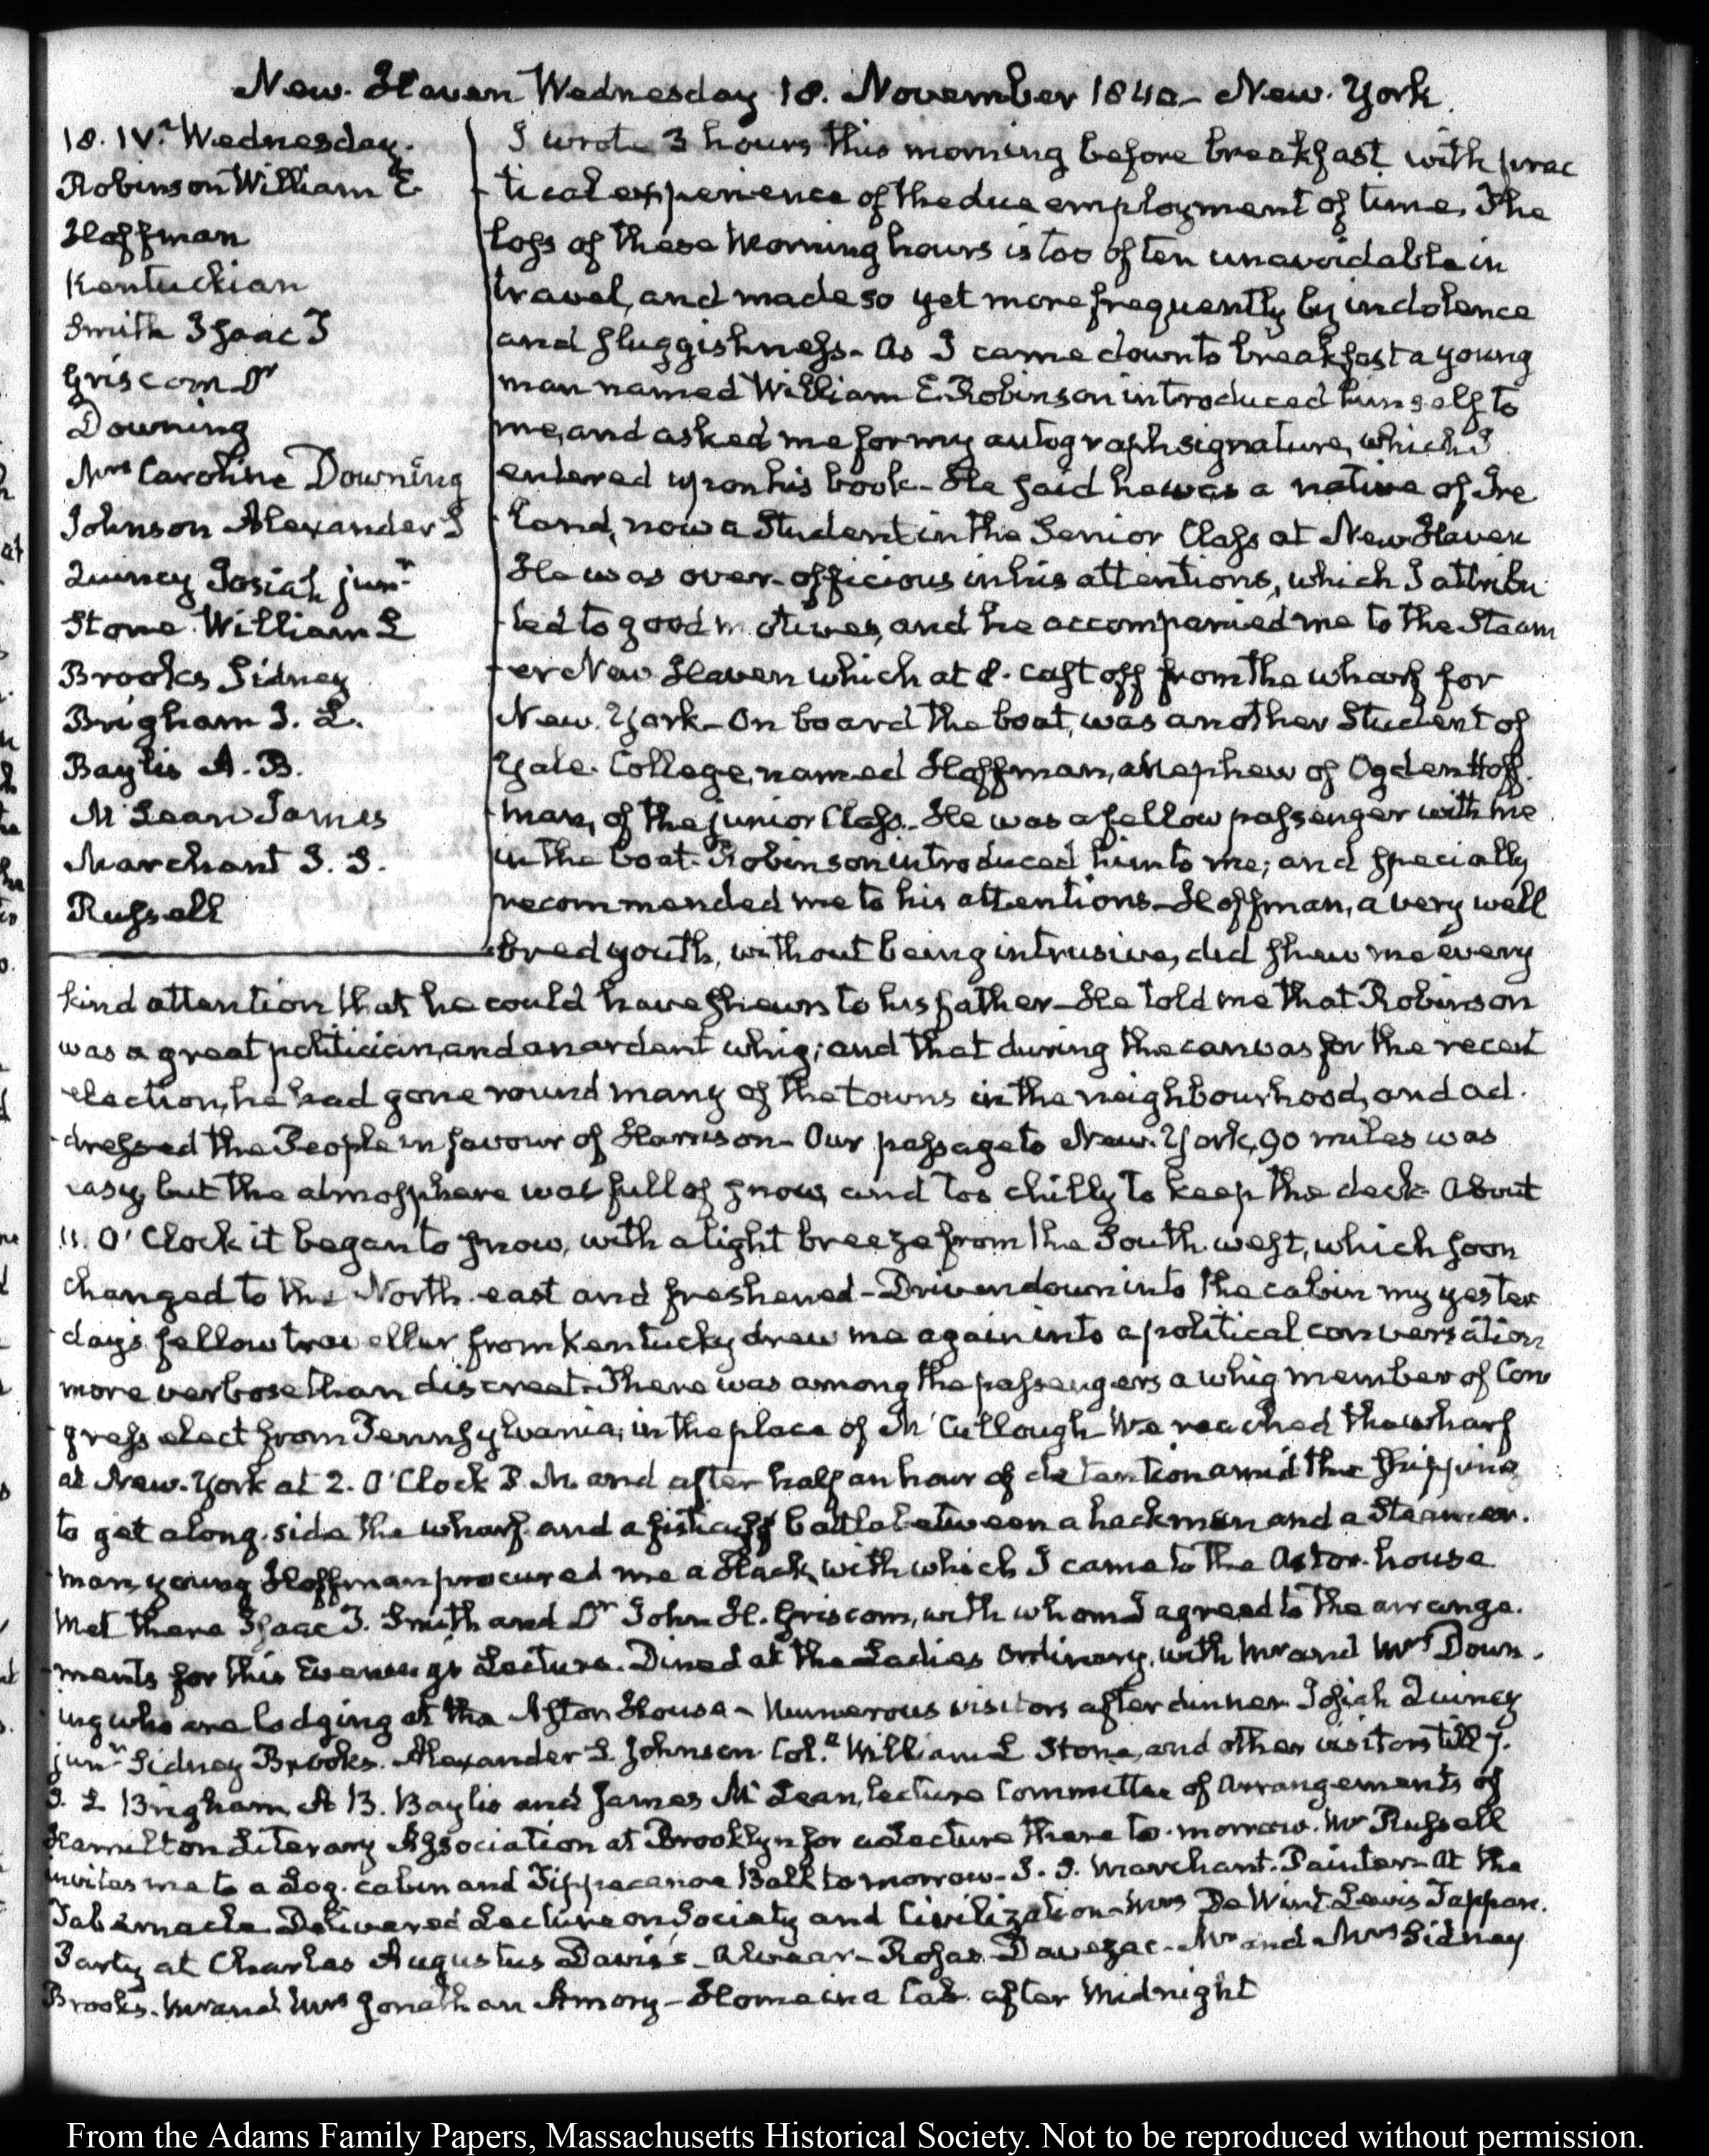 New-Haven Wednesday 18. November 1840 - New-York.
18. IV.a Wednesday.
Robinson William E.
Hoffman
Kentuckian
Smith Isaac T
Griscom Dr
Downing
Mrs Caroline Downing
Johnson Alexander S
Quincy Josiah junr.
Stone William L
Brooks Sidney
Brigham J. L.
Baylis A. B.
McLean James
Marchant J. J.
Russell
I wrote 3 hours this morning before breakfast with prac
tical experience of the due employment of time. The
loss of these Morning hours is too often unavoidable in
travel, and made so yet more frequently by indolence
and sluggishness - As I came down to breakfast a young
man named William E. Robinson introduced himself to
me, and asked me for my autograph signature, which I
entered upon his book - He said he was a native of Ire
land, now a Student in the Senior Class at New Haven
He was over-officious in his attentions, which I attribu
ted to good motives, and he accompanied me to the Steam
er New Haven which at 8. cast off from the wharf for
New-York - On board the boat, was another Student of
Yale-College, named Hoffman, a Nephew of Ogden Hoff-
man, of the junior Class - He was a fellow passenger with me
in the boat. Robinson introduced him to me; and specially
recommended me to his attentions - Hoffman, a very well
bred youth, without being intrusive, did shew me every
kind attention that he could have shewn to his father - He told me that Robinson
was a great politician, and an ardent whig; and that during the canvas for the recent
election, he had gone round many of the towns in the neighbourhood, and ad-
dressed the People in favour of Harrison - Our passage to New-York, 90 miles was
easy, but the atmosphere was full of snow, and too chilly to keep the deck - About
11. O'Clock it began to snow, with a light breeze from the South-west, which soon
changed to the North-east and freshened - Driven down into the cabin my yester
day's fellow traveller from Kentucky drew me again into a political conversation
more verbose than discreet - There was among the passengers a whig member of Con
gress elect from Pennsylvania; in the place of McCullough - We reached the wharf
at New-York at 2. O'Clock P. M. and after half an hour of detention amid the shipping
to get along-side the wharf and a fisticuff battle between a hackman and a Steamer-
man, young Hoffman procured me a Hack, with which I came to the Astor-house
Met there Isaac T. Smith and Dr John H. Griscom, with whom I agreed to the arrange-
ments for this Evening's Lecture. Dined at the Ladies Ordinary, with Mr and Mrs Down-
ing who are lodging at the Astor House - Numerous visitors after dinner Josiah Quincy
junr Sidney Brooks. Alexander S Johnson Col.l William L Stone, and other visitors till 7.
J. L Brigham, A B. Baylis and James McLean, lecture Committee of Arrangements of
Hamilton Literary Association at Brooklyn for a Lecture there to-morrow. Mr Russell
invites me to a Log-cabin and Tippecanoe Ball to morrow - J. J. Marchant. Painter - At the
Tabernacle Delivered Lecture on Society and Civilization - Mrs De Wint Lewis Tappan.
Party at Charles Augustus Davis's - Alvear - Rosas - Davezac - Mr and Mrs Sidney
Brooks - Mr and Mrs Jonathan Amory - Home in a Cab. after Midnight
From the Adams Family Papers, Massachusetts Historical Society. Not to be reproduced without permission.